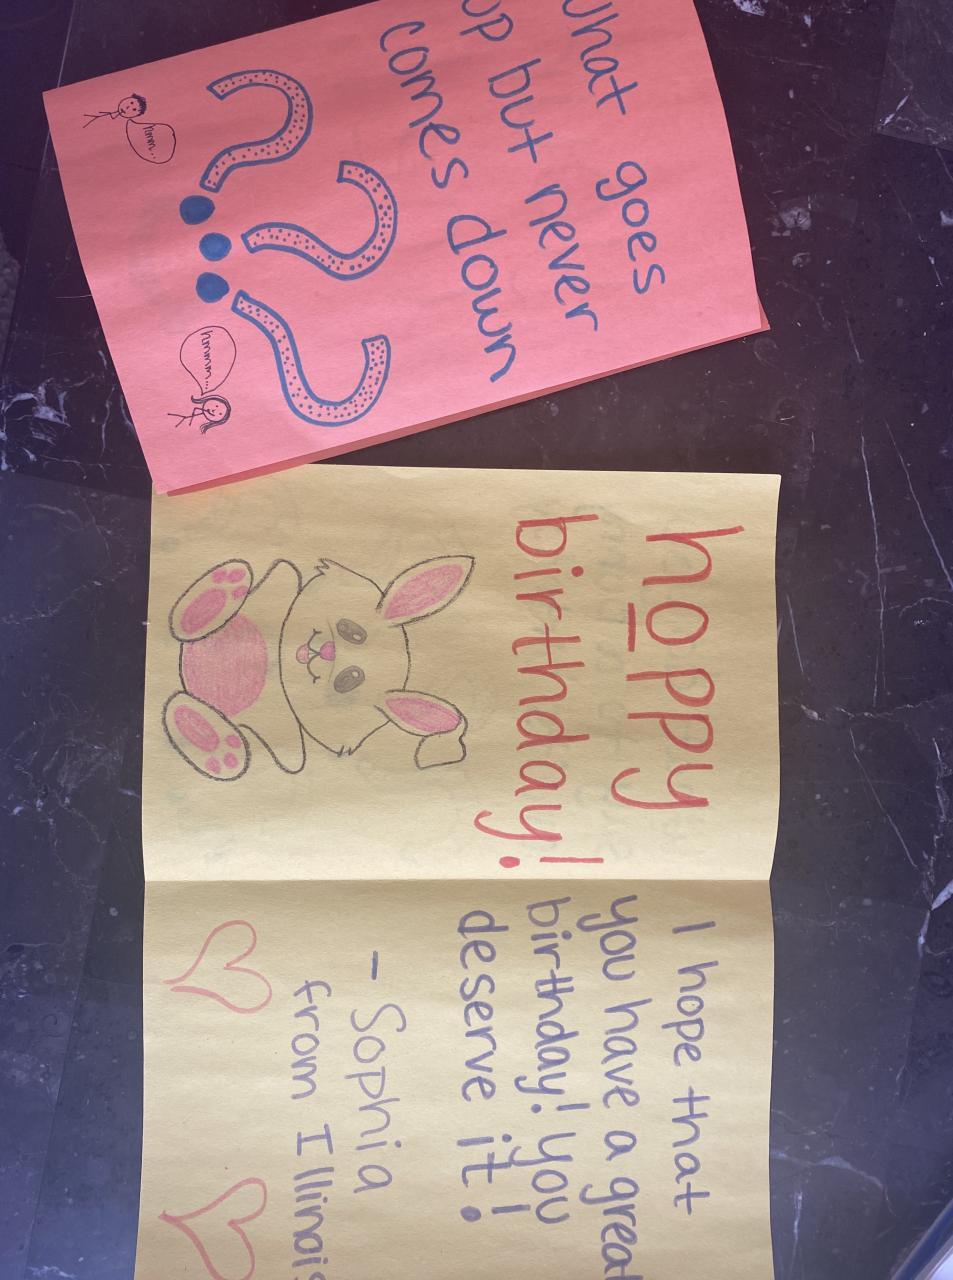 What goes
up but never
comes down
hmm...
hmmm...
hoppy
birthday!
I hope that
you have a great
birthday! you
deserve it!
- Sophia
from Illinois